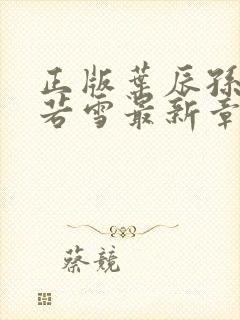 正版葉辰孫
若雪最新章
蔡競